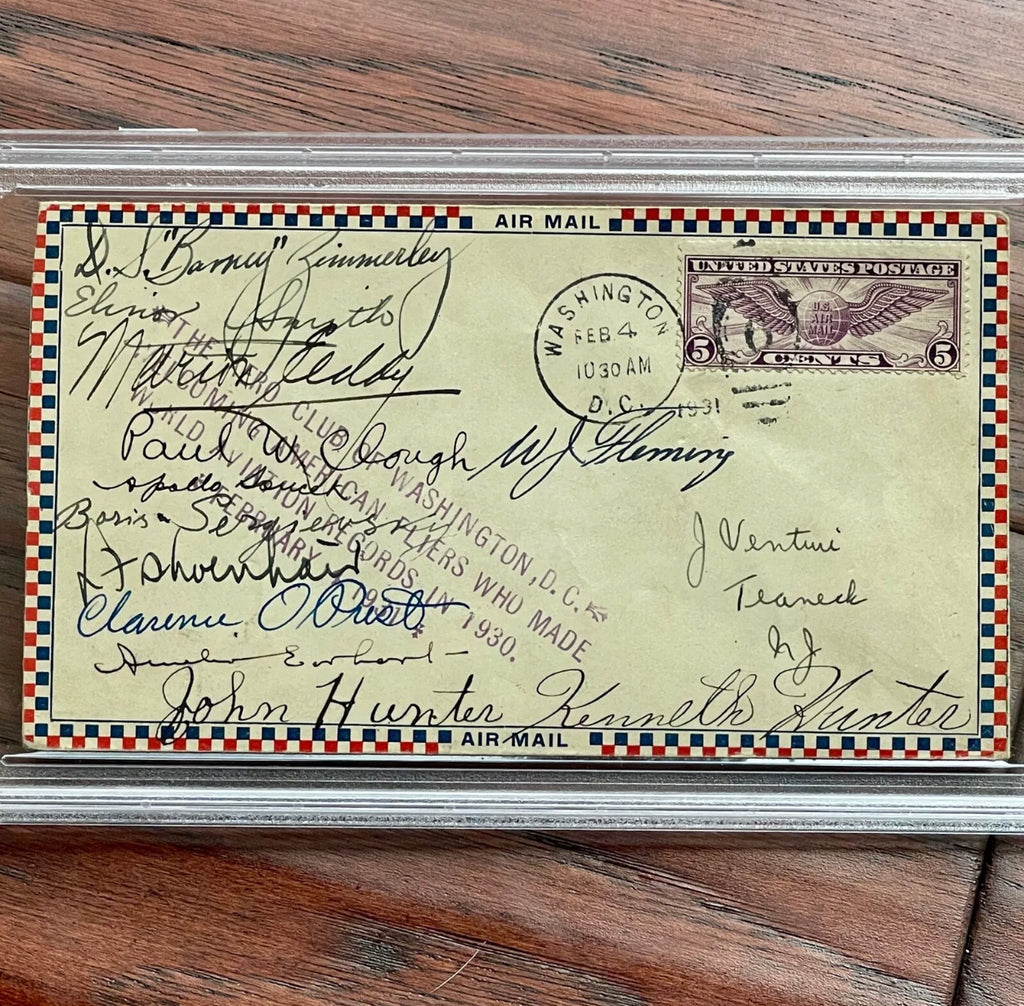 AIR MAIL
D. S. "Barney" Zimmerley
Elinor Smith
Martin Jensen
Paul W. Clough W J Fleming
Apollo Soucek
Boris Sergievsky
Clarence O Prest
Amelia Earhart
John Hunter Kenneth Hunter
THE CLUB OF WASHINGTON, D.C.
AMERICAN FLIERS WHO MADE
WORLD AVIATION RECORDS IN 1930.
FEBRUARY
1931
WASHINGTON
FEB 4
10 30 AM
D.C.
1931
UNITED STATES POSTAGE
U.S.
AIR
MAIL
5 CENTS 5
J Ventini
Teaneck
NJ
AIR MAIL